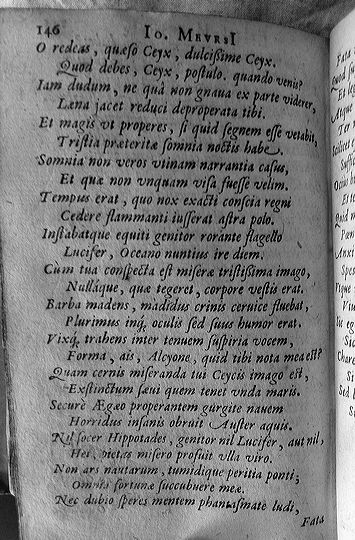 146 IO. MEVRSI
O redeas, quæso Ceyx, dulcissime Ceyx.
Quod debes, Ceyx, postulo. quando venis?
Iam dudum, ne quà non gnaua ex parte viderer,
Læna jacet reduci deproperata tibi.
Et magis vt properes, si quid segnem esse vetabit,
Tristia præteritæ somnia noctis habe.
Somnia non veros vtinam narrantia casus,
Et quæ non vnquam visa fuisse velim.
Tempus erat, quo nox exacti conscia regni
Cedere flammanti iusserat astra polo.
Instabatque equiti genitor rorante flagello
Lucifer, Oceano nuntius ire diem.
Cùm tua conspecta est miseræ tristissima imago,
Nullaque, quæ tegeret, corpore vestis erat.
Barba madens, madidus crinis ceruice fluebat,
Plurimus inq; oculis sed suus humor erat.
Vixq; trahens inter tenuem suspiria vocem,
Forma, ais, Alcyone, quid tibi nota mea est?
Quam cernis miseranda tui Ceycis imago est,
Exstinctum sæui quem tenet vnda maris.
Securè Ægæo properantem gurgite nauem
Horridus insanis obruit Auster aquis.
Nil socer Hippotades, genitor nil Lucifer, aut nil,
Hei, pietas misero profuit vlla viro.
Non ars nautarum, tumidique peritia ponti;
Omnia fortunæ succubuere meæ.
Nec dubio speres mentem phantasmate ludi,
Fata